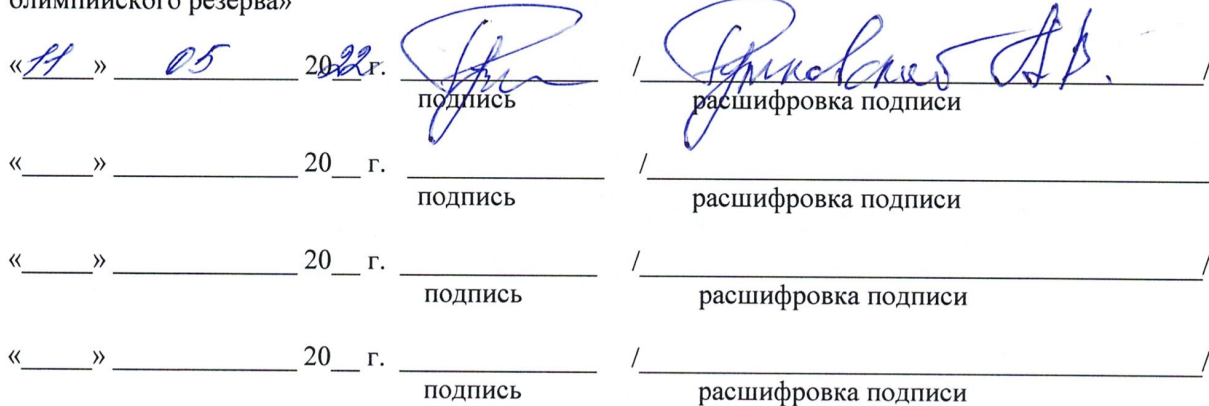 олимпийского резерва»
«11» 05 2022г. /А.В. /
подпись расшифровка подписи
«_____» ______________ 20__ г. _______________ /___________________________________________
подпись расшифровка подписи
«_____» ______________ 20__ г. _______________ /___________________________________________/
подпись расшифровка подписи
«_____» ______________ 20__ г. _______________ /___________________________________________/
подпись расшифровка подписи